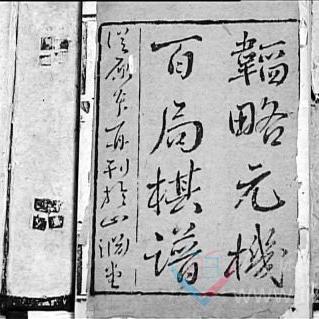 韜略元機
百局棋譜
從原本再刊於山堂